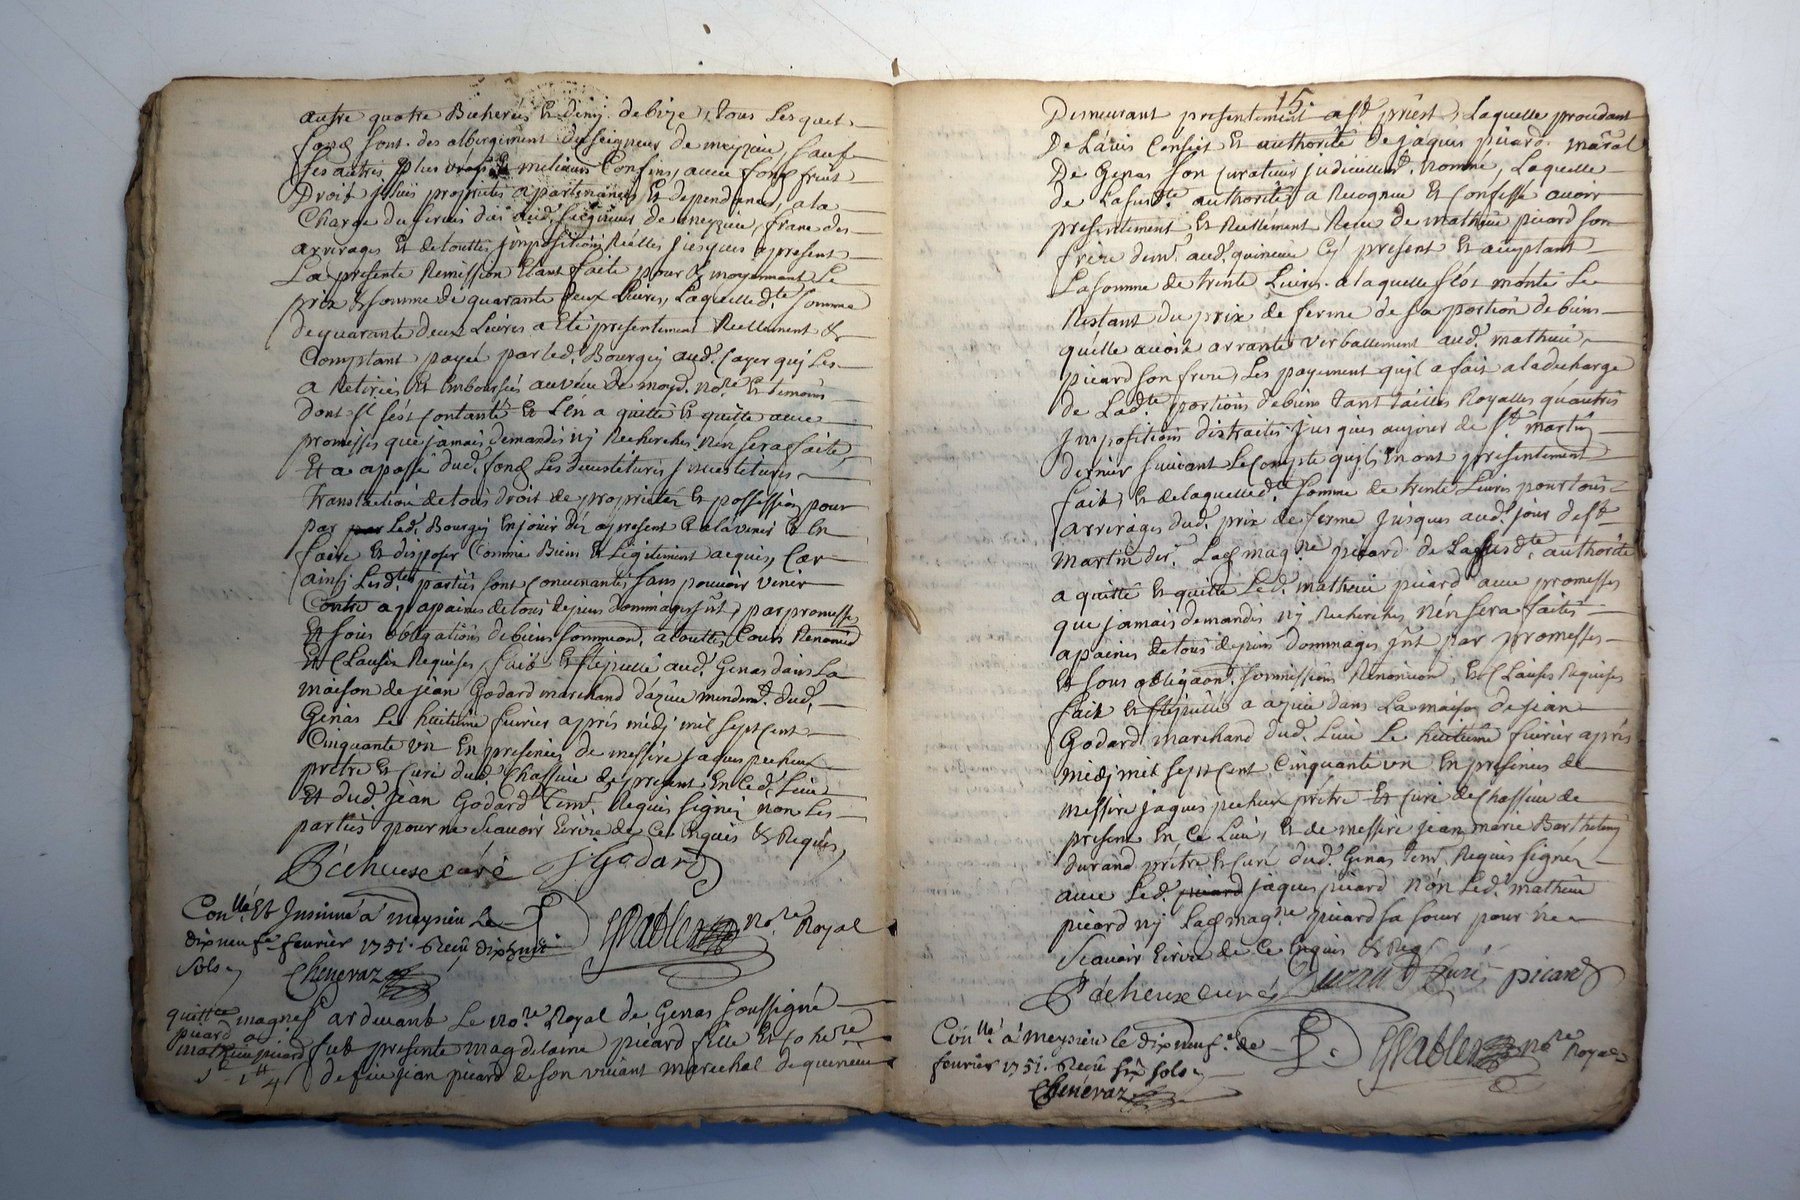 autre quatre Bicherées Et demy de bize, tous Lesquels
fonds sont des albergement du seigneur de meyzieu, sauf
ses autres plus vrays & meilieurs Confins, avec fond fruit
Droit proprietés apartenances, Et dependances, a la
Charge du servis dû aud. seigneur de meyzieu, franc des
arrerages Et de touttes Impositions Réelles jusques apresent
La presente Remission Etant faite pour & moyennant Le
prix & somme de quarante deux Livres, Laquelle d.te somme
de quarante deux Livres a Eté presentement Réellement &
Comptant payée par led. Bourgey aud. Cayer quj Les
a Retirées Et Emboursés au veüe de moyd. no.re Et temoins
dont Il s'est Contanté Et L'en a quitté Et quitte avec
promesses que jamais demandes nj Recherches n'en sera faite,
Et a apassé dud. fond Les devestitures Investitures
translation de tous droit de proprietés Et possession pour
par led. Bourgey En jouir dez apresent & alavenir & En
faire Et disposer Comme Biens Et Légitement acquis, Car
ainsj Lesd.tes parties sont Convenantes sans pouvoir venir
Contre a apaines de tous depens dommages Int, par promesses
Et sous obligations de biens soummions, atouttes Cours Renonciõ
Et Clauses Requises, fait Et stipullé aud. Genas dans La
maison de jean Godard marchand d'azieu mandem.t dud.
Genas Le huitieme fevrier après midj mil sept Cent
Cinquante un En presence de messire jaques pecheux
prêtre Et Curé dud. Chassieu de present En led. Lieu
Et dud. jean Godard tem. Requis signez non Les
parties pour ne sçavoir Ecrire de Ce Enquis & Requis
Pécheuxe curé J. Godard
Con.llé Et Insinué a meysieu Le
dix neuf.e fevrier 1751. Reçû dix huit
sols
Cheneraz
no.re Royal
quittce magne picard a mathieu picard
pardevant Le no.re Royal de Genas soussigné
fut presente magdelaine picard fille Et Cohe.re
de feu jean picard de son vivant marechal de quineieu
15.
Demeurant presentement a s.t priest, Laquelle procedant
De L'avis Conseil Et authorité De jaques picard marãl
De Genas son Curateur judiciellem.t nommé, Laquelle
de Lasusd.te authorité, a Recognue Et Confessé avoir
presentement, Et Reellement Receu de mathieu picard son
frere dem.t aud. quineieu cy present Et acceptant
La somme de trente Livres. a laquelle s'est monté Le
Restant du prix de ferme de sa portion de biens
qu'elle avoit arranté verballement aud. mathieu
picard son frere, Les payement quj'l a fait ala decharge
de Lad.te portions de biens tant tailles Royalles qu'autres
Impositions distraites jusques aujour de s.t martin
dernier suivant Le Compte quj'ls En ont presentement
fait, Et de laquelle d.te somme de trente Livres pour tous
arrerages dud. prix de ferme jusques aud. jour de s.t
Martin der. Lad. mag.ne picard de Lasusd.te authorité
a quitté Et quitte Led. mathieu picard avec promesses
que jamais demandes nj Recherches n'en sera faites
apaines de tous depens dommages Int par promesses
Et sous obligaon. soumissions Renoncion, Et Clauses Requises
fait Et stipullé a azieu dans La maison de jean
Godard marchand dud. Lieu Le huitieme fevrier après
midj mil sept Cent Cinquante un En presence de
messire jaques pecheux prêtre Et Curé de Chassieu de
present En Ce Lieu, Et de messire jean marie Barthelemy
durand prêtre Et Curé dud. Genas tem. Requis signéz
avec Led. picard jaques picard non Led. mathieu
picard nj Lad. mag.ne picard sa sœur pour ne
sçavoir Ecrire de Ce Enquis & Req
Pécheuxe curé Durand Curé picard
Con.llé a meysieu le dix neuf.e de
fevrier 1751. Reçû six sols
Cheneraz
no.re Royal